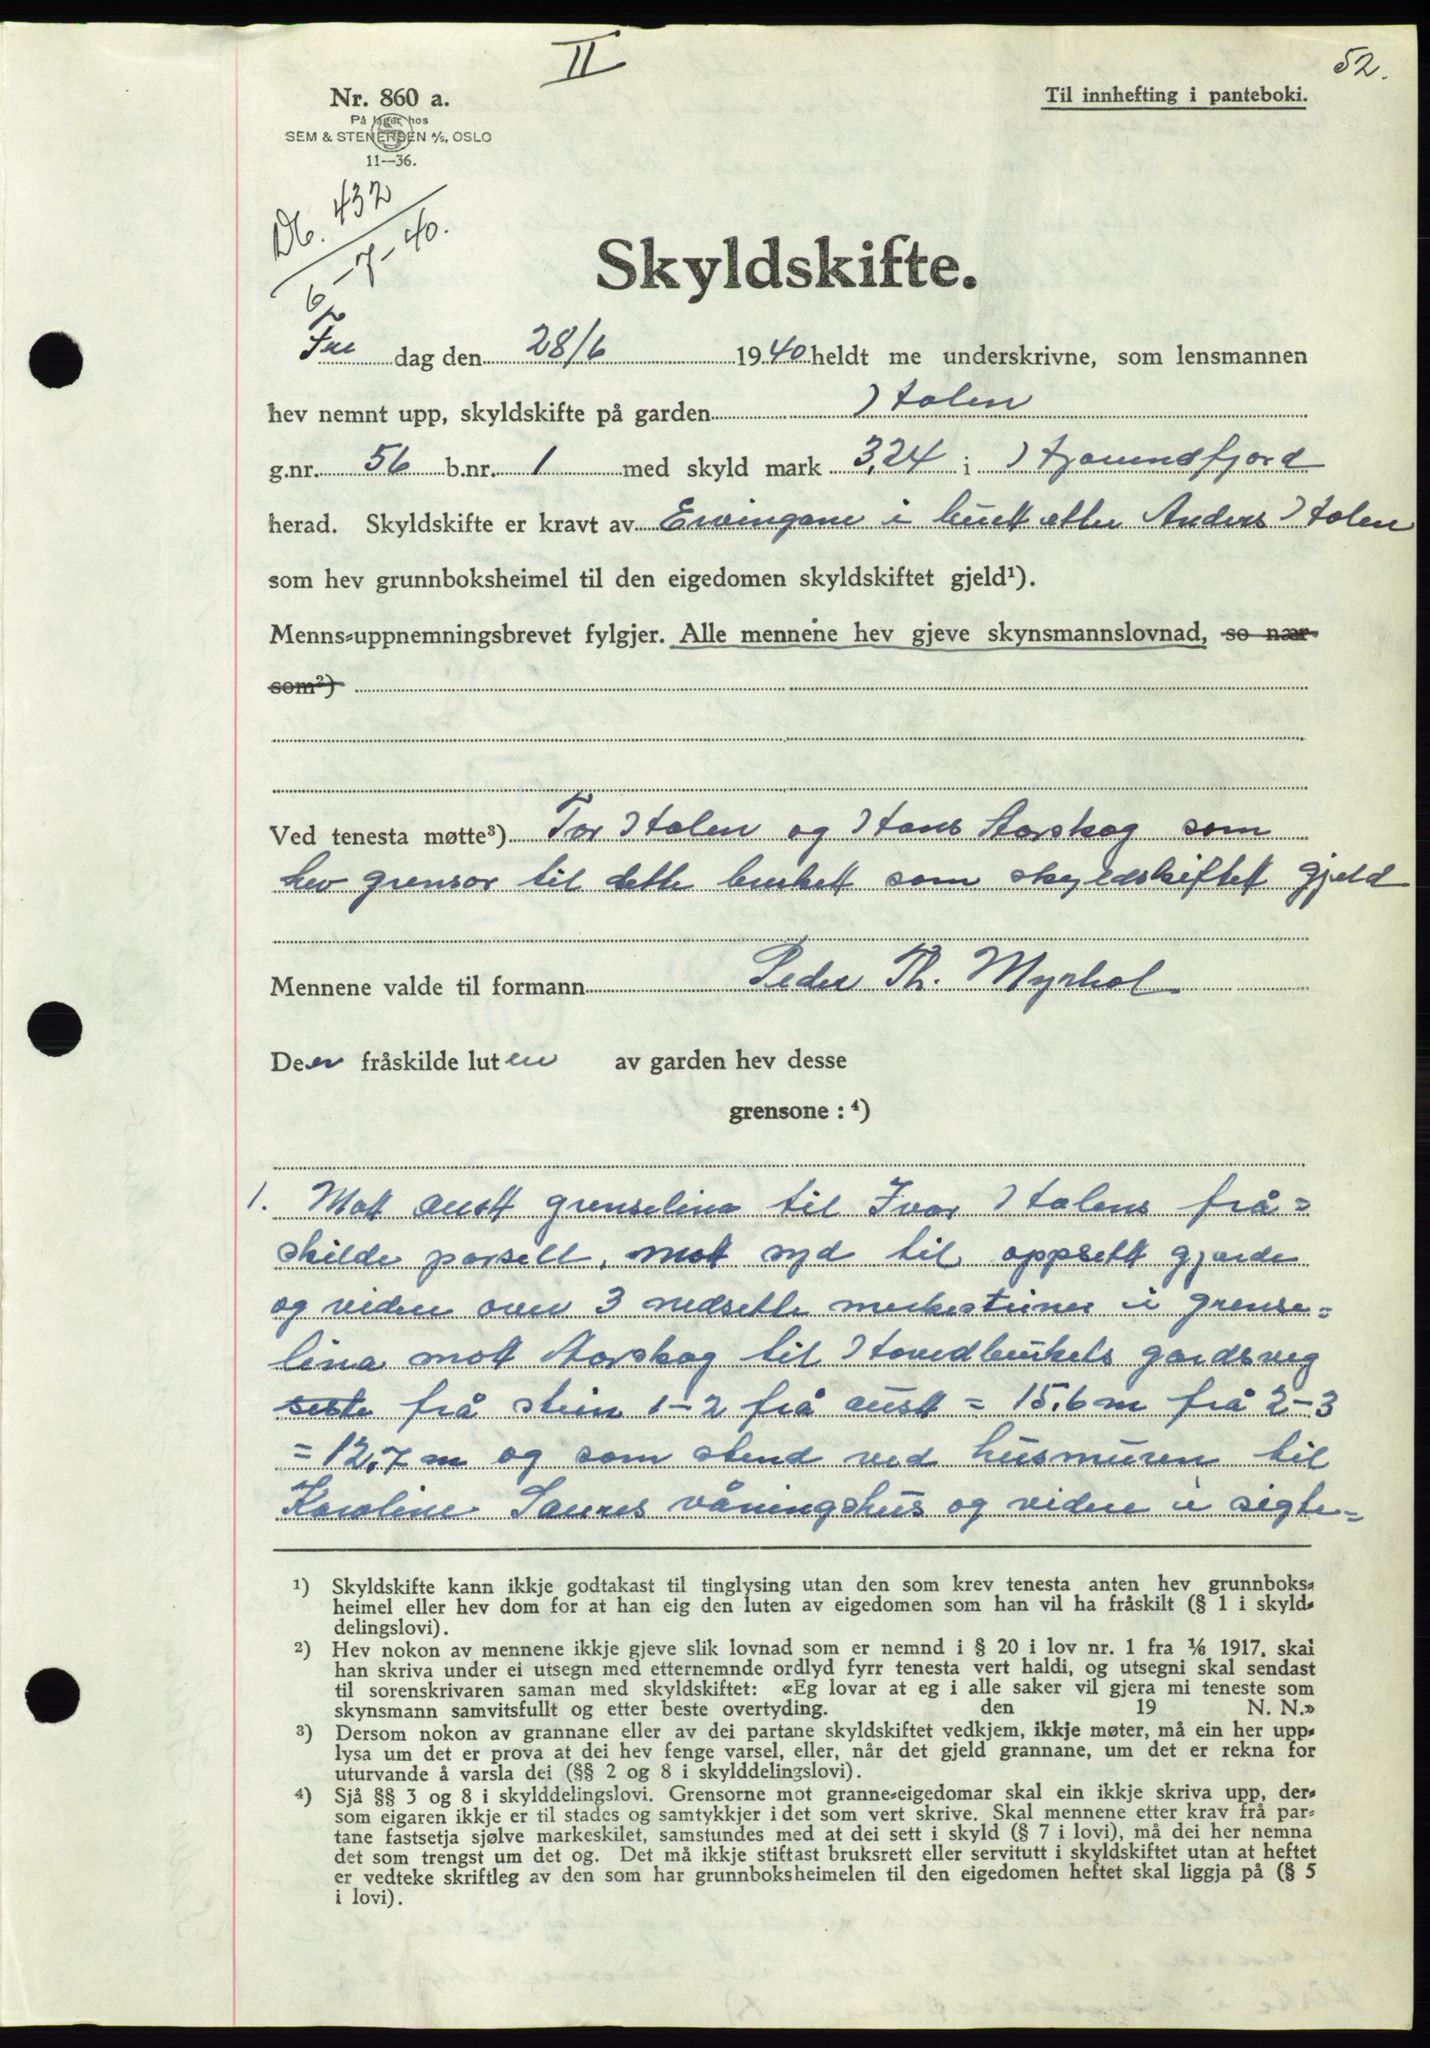 II
52.
Nr. 860 a.
Til innhefting i panteboki.
På lager hos
SEM & STENERSEN A/S, OSLO
11—36.
Db. 432
6-7-40.
Skyldskifte.
Fre dag den 28/6 1940 heldt me underskrivne, som lensmannen
hev nemnt upp, skyldskifte på garden Holen
g.nr. 56 b.nr. 1 med skyld mark 3,24 i Hjørundfjord
herad. Skyldskifte er kravt av Ervingane i buett etter Anders Holen
som hev grunnboksheimel til den eigedomen skyldskiftet gjeld¹).
Menns-uppnemningsbrevet fylgjer. Alle mennene hev gjeve skynsmannslovnad, so nær
som²)
Ved tenesta møtte³) Tor Holen og Hans Aarskog som
hev grensor til dette bruket som skyldskiftet gjeld
Mennene valde til formann Peder Th. Myrhol
Den fråskilde luten av garden hev desse
grensone : ⁴)
1. Mott austt grenselina til Ivar Holens frå=
skilde parsell, mott syd til oppsett gjerde
og videre over 3 nedsette merkesteiner i grense-
lina mott Aarskog til Hovedbrukets gardsveg
seste frå stein 1-2 frå austt = 15,6 m frå 2-3
= 12,7 m og som stend ved husmuren til
Karoline Saures våningshus og videre i sigte=
¹) Skyldskifte kann ikkje godtakast til tinglysing utan den som krev tenesta anten hev grunnboks-
heimel eller hev dom for at han eig den luten av eigedomen som han vil ha fråskilt (§ 1 i skyld-
delingslovi).
²) Hev nokon av mennene ikkje gjeve slik lovnad som er nemnd i § 20 i lov nr. 1 fra 1/6 1917, skal
han skriva under ei utsegn med etternemnde ordlyd fyrr tenesta vert haldi, og utsegni skal sendast
til sorenskrivaren saman med skyldskiftet: «Eg lovar at eg i alle saker vil gjera mi teneste som
skynsmann samvitsfullt og etter beste overtyding. den 19 N. N.»
³) Dersom nokon av grannane eller av dei partane skyldskiftet vedkjem, ikkje møter, må ein her upp-
lysa um det er prova at dei hev fenge varsel, eller, når det gjeld grannane, um det er rekna for
uturvande å varsla dei (§§ 2 og 8 i skylddelingslovi).
⁴) Sjå §§ 3 og 8 i skylddelingslovi. Grensorne mot granne-eigedomar skal ein ikkje skriva upp, der-
som eigaren ikkje er til stades og samtykkjer i det som vert skrive. Skal mennene etter krav frå par-
tane fastsetja sjølve markeskilet, samstundes med at dei sett i skyld (§ 7 i lovi), må dei her nemna
det som trengst um det og. Det må ikkje stiftast bruksrett eller servitutt i skyldskiftet utan at heftet
er vedteke skriftleg av den som har grunnboksheimelen til den eigedomen heftet skal liggja på (§ 5
i lovi).